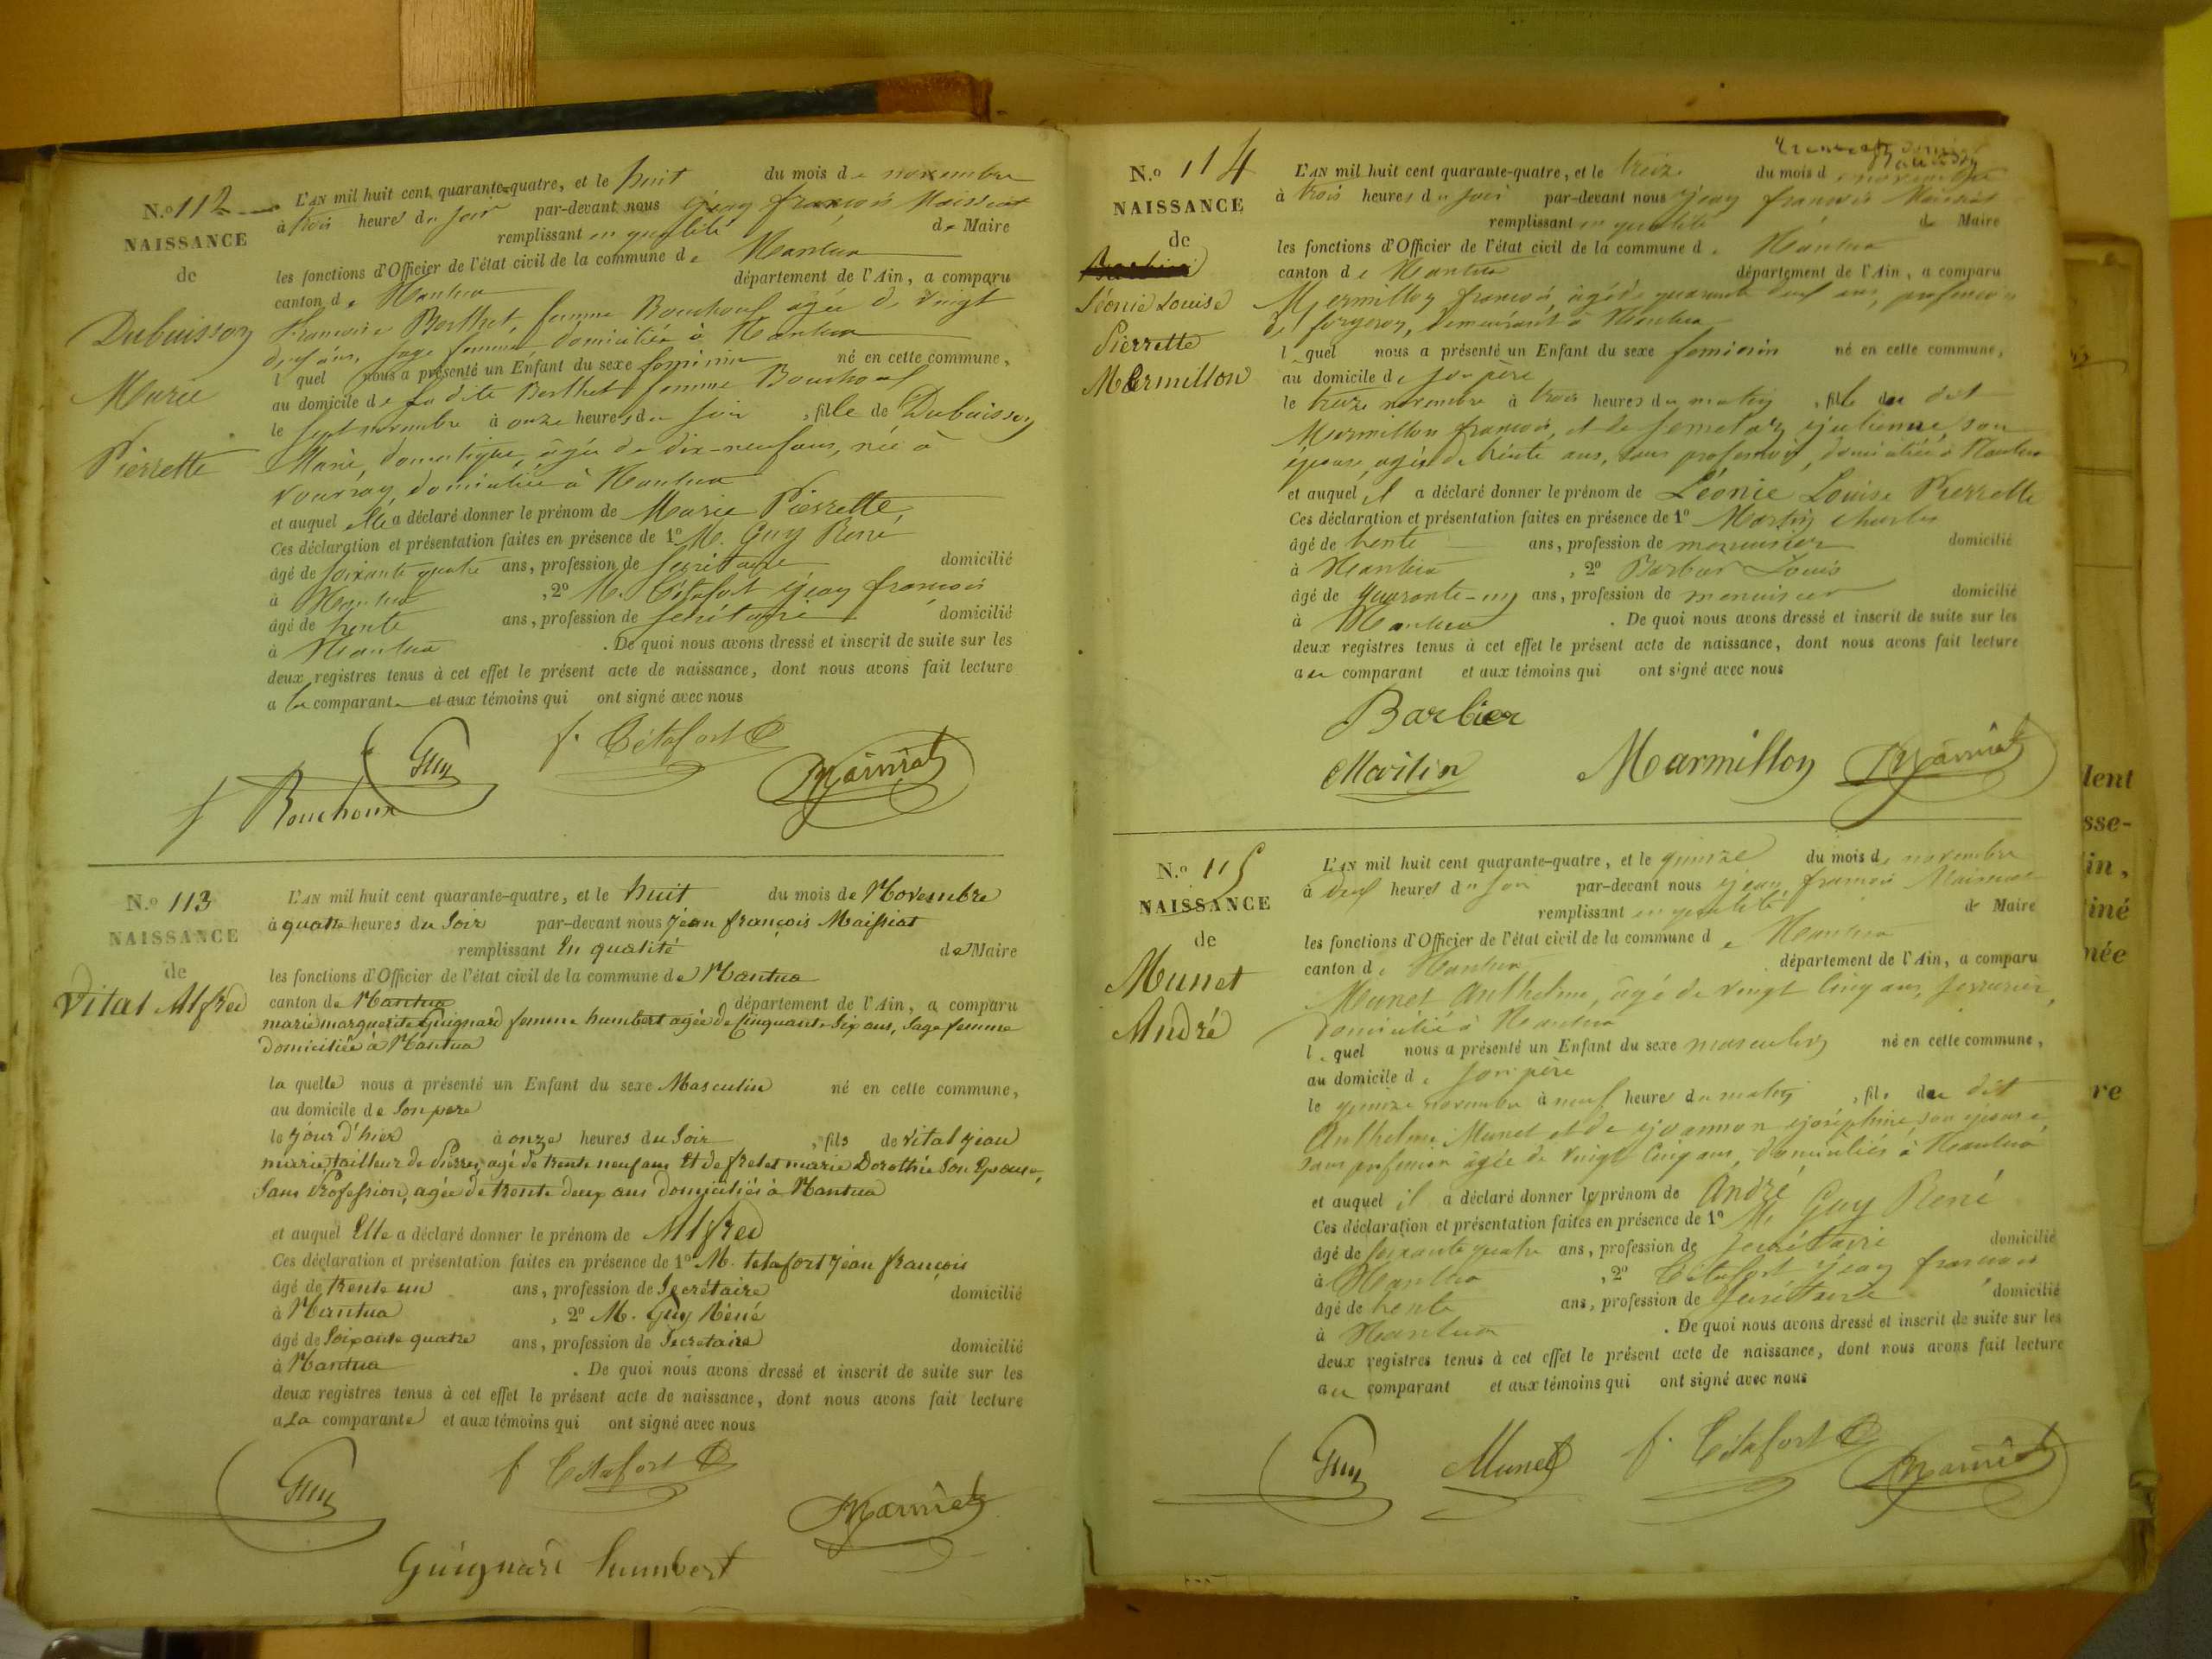 N.o 112
NAISSANCE
de
Dubuisson
Marie
Pierrette
L'AN mil huit cent quarante-quatre, et le huit du mois de novembre
à trois heures du soir par-devant nous jean françois Maissiat
remplissant en qualité de Maire
les fonctions d'Officier de l'état civil de la commune de Nantua
canton de Nantua département de l'Ain, a comparu
françoise Berthet, femme Bouchoux agée de vingt
neuf ans, sage femme domiciliée à Nantua
l quel nous a présenté un Enfant du sexe feminin né en cette commune,
au domicile de la dite Berthet femme Bouchoux
le sept novembre à onze heures du soir , fille de Dubuisson
Marie, domestique, âgée de dix-neuf ans, née à
domiciliée à Nantua
et auquel elle a déclaré donner le prénom de Marie Pierrette,
Ces déclaration et présentation faites en présence de 1o M. Guy René
âgé de soixante quatre ans, profession de secrétaire domicilié
à Nantua , 2o M. Tétafort jean françois
âgé de trente ans, profession de secrétaire domicilié
à Nantua . De quoi nous avons dressé et inscrit de suite sur les
deux registres tenus à cet effet le présent acte de naissance, dont nous avons fait lecture
a la comparante et aux témoins qui ont signé avec nous
Guy f. Tétafort Maissiat
f Bouchoux
N.o 113
NAISSANCE
de
Vital Alfred
L'AN mil huit cent quarante-quatre, et le huit du mois de Novembre
à quatre heures du Soir par-devant nous jean françois Maissiat
remplissant En qualité de Maire
les fonctions d'Officier de l'état civil de la commune de Nantua
canton de Nantua département de l'Ain, a comparu
marie marguerite Guignard femme humbert agée de Cinquante Six ans, Sage femme
domiciliée à Nantua
la quelle nous a présenté un Enfant du sexe Masculin né en cette commune,
au domicile de Son pere
le jour d'hier à onze heures du Soir , fils de Vital jean
marie tailleur de Pierre, agé de trente neuf ans Et de frelet marie Dorothée Son Epouse,
Sans Profession, agée de trente deux ans domiciliés à Nantua
et auquel Elle a déclaré donner le prénom de Alfred
Ces déclaration et présentation faites en présence de 1o M. tetafort jean françois
âgé de trente un ans, profession de Secrétaire domicilié
à Nantua , 2o M. Guy Réné
âgé de Soixante quatre ans, profession de Secretaire domicilié
à Nantua . De quoi nous avons dressé et inscrit de suite sur les
deux registres tenus à cet effet le présent acte de naissance, dont nous avons fait lecture
a La comparante et aux témoins qui ont signé avec nous
Guy f Tétafort Maissiat
Guignard humbert
N.o 114
NAISSANCE
de
Léonie Louise
Pierrette
Marmillon
L'AN mil huit cent quarante-quatre, et le treize du mois d novembre
à trois heures du soir par-devant nous jean françois Maissiat
remplissant en qualité de Maire
les fonctions d'Officier de l'état civil de la commune d. Nantua
canton de Nantua département de l'Ain, a comparu
Mermillon françois, agé de quarante deux ans, profession
de forgeron, demeurant à Nantua
l quel nous a présenté un Enfant du sexe feminin né en cette commune,
au domicile de son père
le treize novembre à trois heures du matin , fille du dit
Marmillon françois, et de julienne son
épouse, agée de trente ans, sans profession, domiciliée à Nantua
et auquel il a déclaré donner le prénom de Léonie Louise Pierrette
Ces déclaration et présentation faites en présence de 1o Martin charles
âgé de trente ans, profession de menuisier domicilié
à Nantua , 2o Barbier Louis
âgé de quarante-un ans, profession de menuisier domicilié
à Nantua . De quoi nous avons dressé et inscrit de suite sur les
deux registres tenus à cet effet le présent acte de naissance, dont nous avons fait lecture
au comparant et aux témoins qui ont signé avec nous
Barbier
Martin Marmillon Maissiat
N.o 115
NAISSANCE
de
Munet
André
L'AN mil huit cent quarante-quatre, et le quinze du mois de novembre
à deux heures du soir par-devant nous jean françois Maissiat
remplissant en qualité de Maire
les fonctions d'Officier de l'état civil de la commune de Nantua
canton de Nantua département de l'Ain, a comparu
Munet Anthelme, âgé de vingt cinq ans, serrurier,
domicilié à Nantua
l quel nous a présenté un Enfant du sexe masculin né en cette commune,
au domicile de son père
le quinze novembre à neuf heures du matin , fils du dit
Anthelme Munet et de joannon joséphine, son épouse,
sans profession agée de vingt cinq ans, domiciliés à Nantua
et auquel il a déclaré donner le prénom de André
Ces déclaration et présentation faites en présence de 1o M. Guy René
âgé de soixante quatre ans, profession de secrétaire domicilié
à Nantua , 2o Tétafort jean françois
âgé de trente ans, profession de secrétaire domicilié
à Nantua . De quoi nous avons dressé et inscrit de suite sur les
deux registres tenus à cet effet le présent acte de naissance, dont nous avons fait lecture
au comparant et aux témoins qui ont signé avec nous
Guy Munet f. Tétafort Maissiat
dent
sse-
in,
iné
née
re